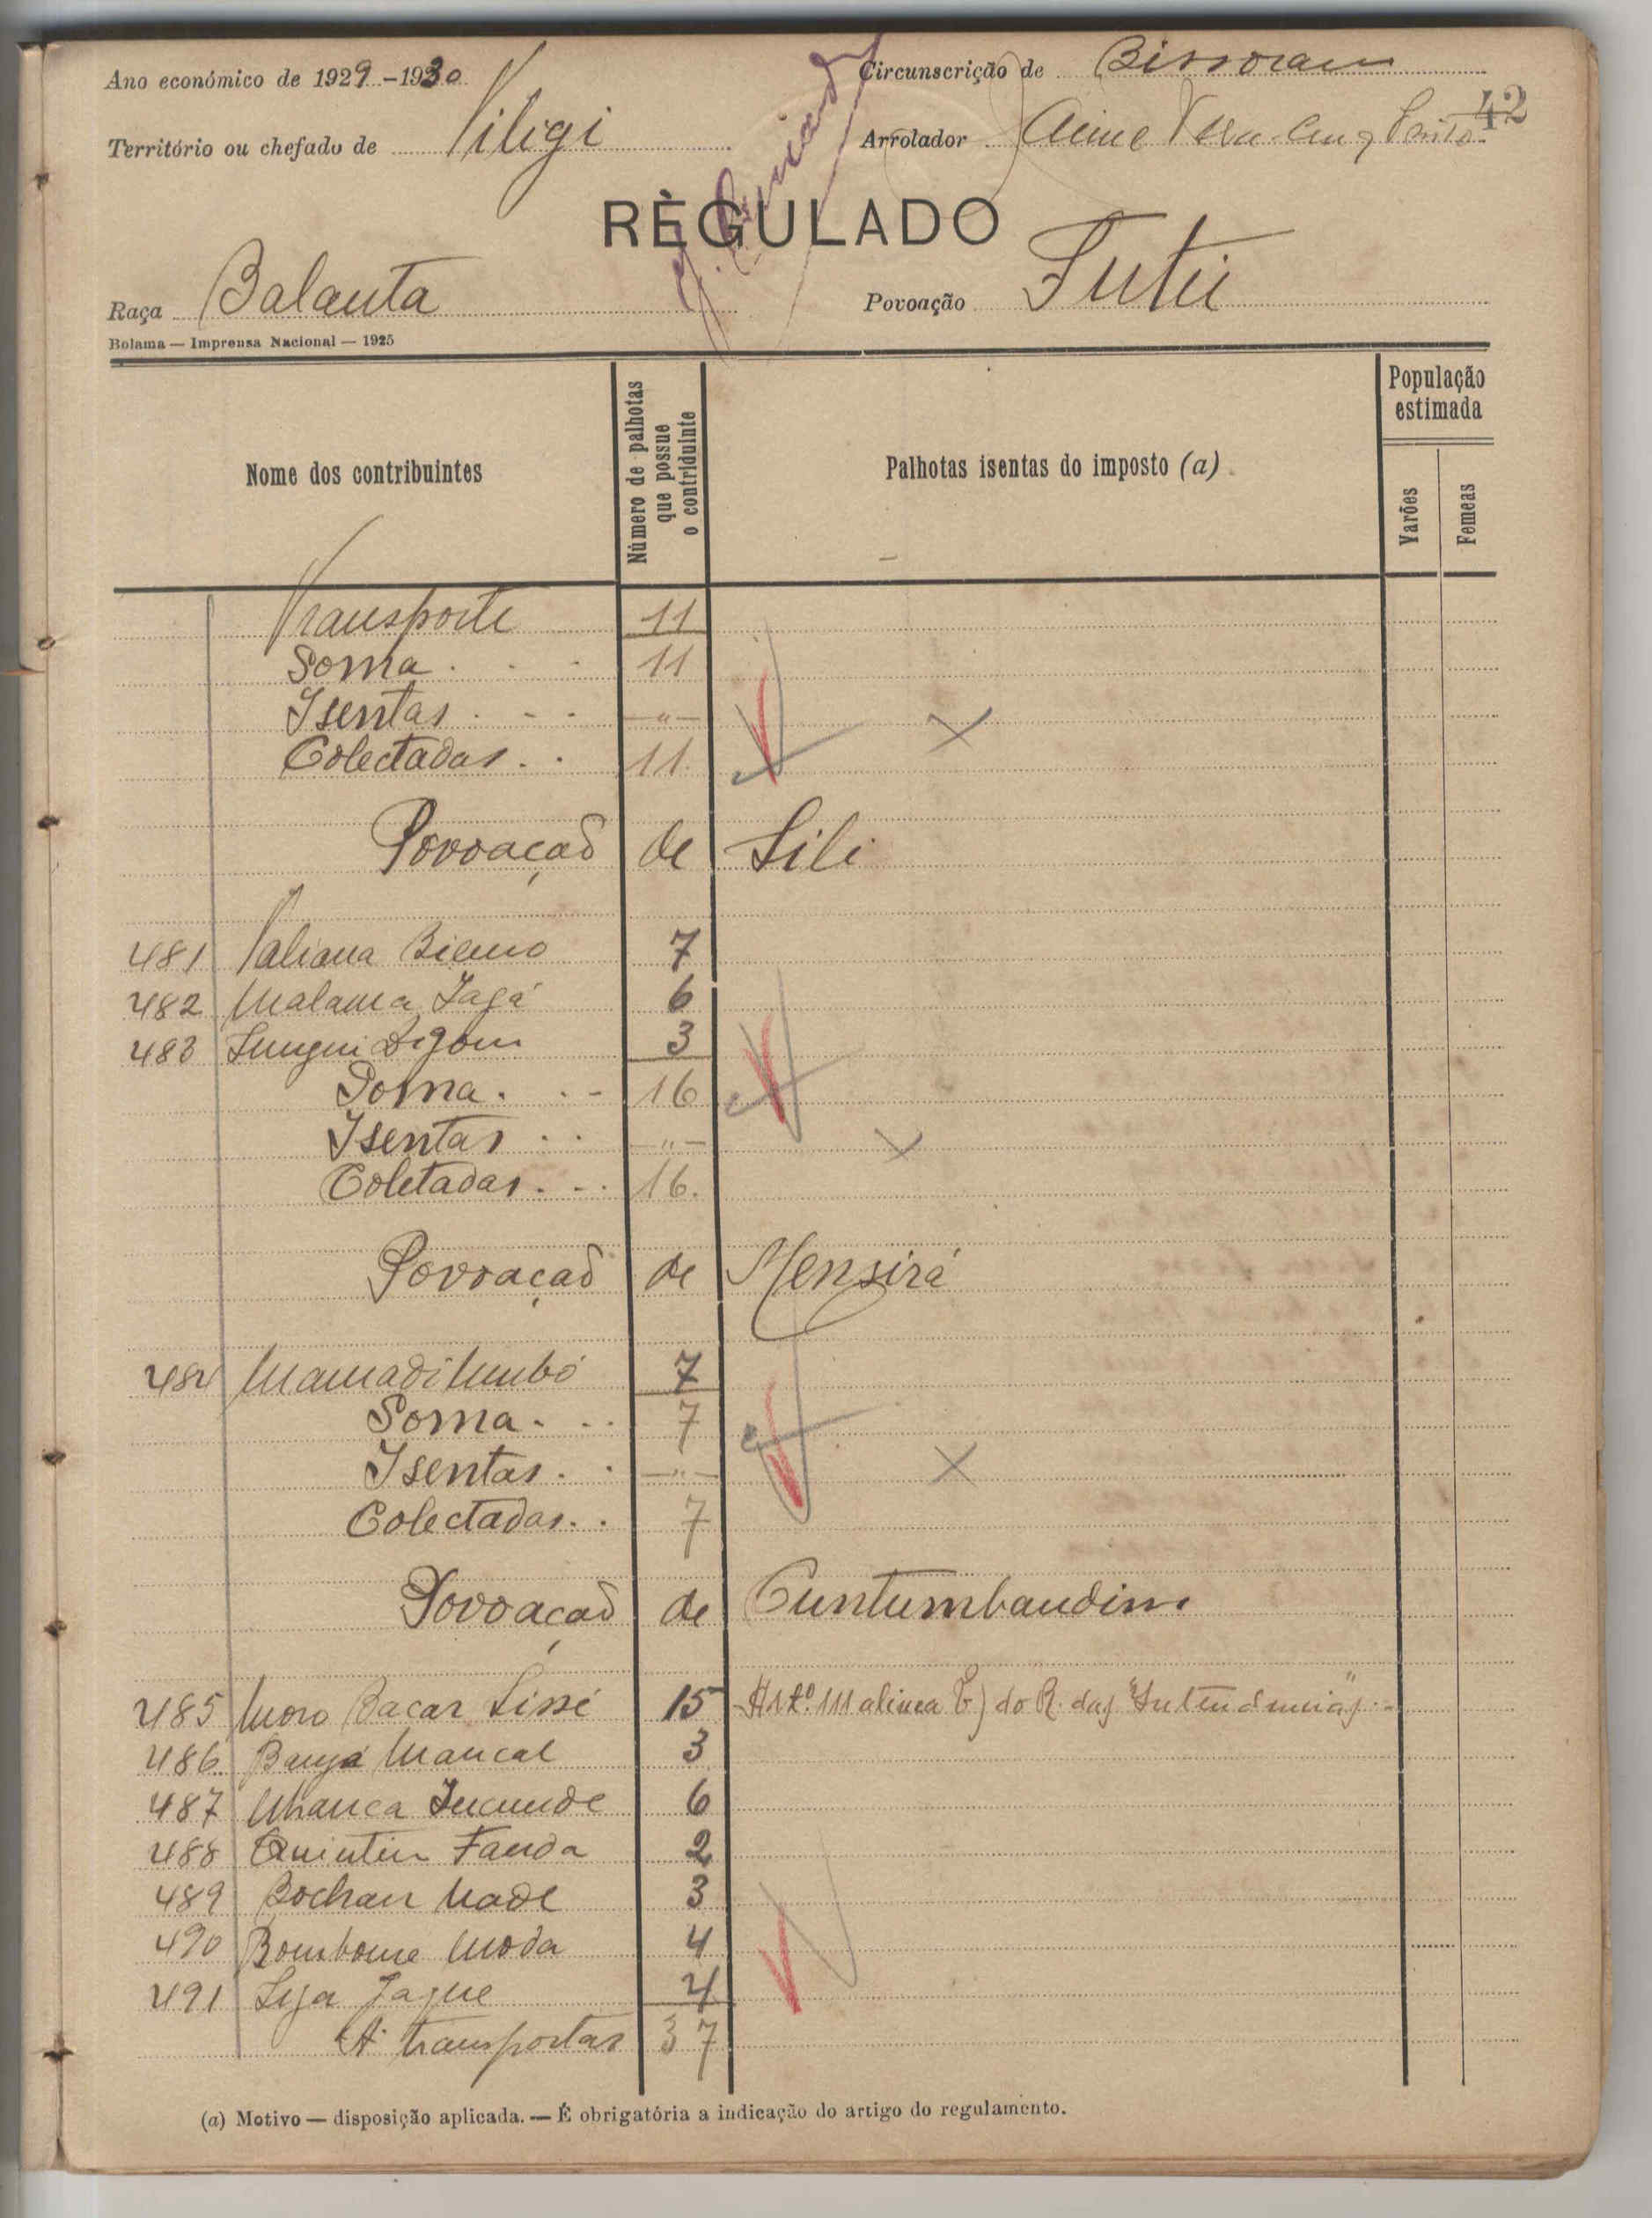 Ano económico de 1929-1930
Circunscrição de Bissoram
42
Território ou chefado de Tiligi
Arrolador
RÈGULADO
Raça Balanta
Povoação Tutú
Bolama — Imprensa Nacional — 1925
Nome dos contribuintes
Número de palhotas que possue o contriduinte
Palhotas isentas do imposto (a)
População estimada
Varões
Femeas
Transporte 11
Soma . . . 11
Isentas . - - —"—
Colectadas . . 11.
Povoaçaõ de Lili
481 Taliana Biemo 7
482 Malama Jagá 6
483 3
Soma . . - 16
Isentas . . —"—
Coletadas . - . 16.
Povoaçaõ de Mensirá
484 Mamadi 7
Soma . . . 7
Isentas . . —"—
Colectadas . . 7
Povoaçaõ de Cuntumbandim
485 Moro Bacar Sissé 15 Artº. 111 alinea b) do R. das "Intendencias".-
486 Banja Mancal 3
487 6
488 Quintin Fanda 2
489 Bochan Nade 3
490 Bombome Moda 4
491 Jaque 4
A transportar 37
(a) Motivo — disposição aplicada. — É obrigatória a indicação do artigo do regulamento.